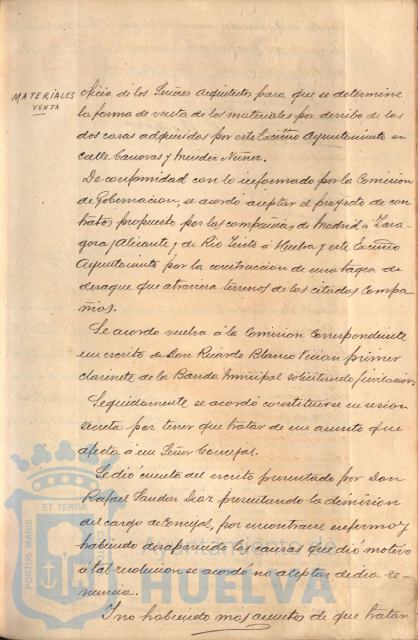 MATERIALES
VENTA
oficio de los Señores Arquitectos para que se determine
la forma de venta de los materiales por derribo de las
dos casas adquiridas por este Excmo Ayuntamiento en
calle Canovas y Mendez Nuñez.
De conformidad con lo informado por la Comision
de Gobernacion, se acordo aceptar el proyecto de con
tratos propuesto por las compañias de Madrid á Zara
goza y Alicante y de Rio Tinto á Huelva y este Excmo
Ayuntamiento por la construccion de una tagea de
desague que atraviesa terrenos de las citadas Compa
ñias.
Se acordo vuelva á la Comision Correspondiente
un escrito de Don Ricardo Blanco primer
clarinete de la Banda Municipal solicitando jubilacion.
Seguidamente se acordó constituirse en sesion
secreta por tener que tratar de un asunto que
afecta á un Señor Concejal.
Se dió cuenta del escrito presentado por Don
Rafael Sander Diaz presentando la dimision
del cargo de Concejal, por encontrarse enfermo y
habiendo desaparecido las causas que dió motivo
á tal resolucion se acordó no aceptar dicha re-
nuncia.
Y no habiendo mas asuntos de que tratar
PORTUS MARIS
ET TERRAE
Ayuntamiento de
HUELVA